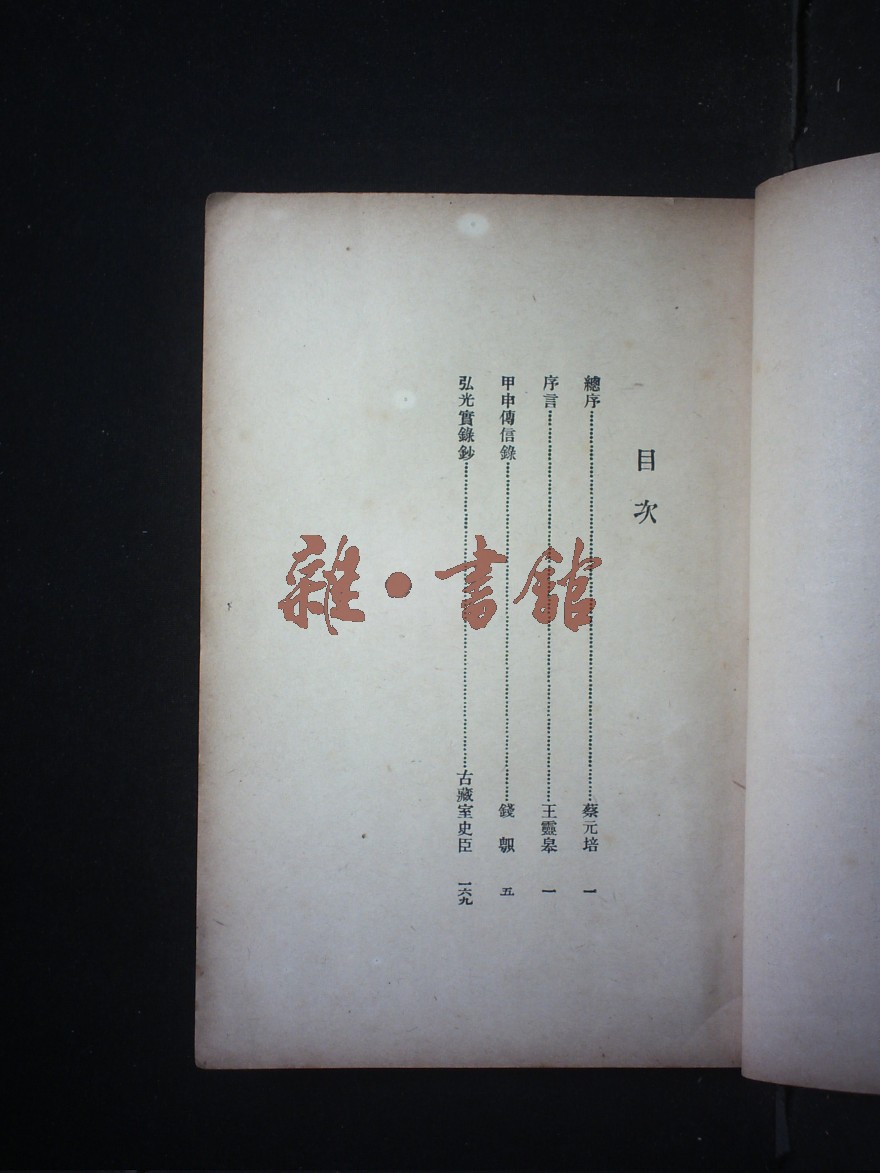 目次
總序……蔡元培 一
序言……王靈皋 一
甲申傳信錄……錢𪂹 五
弘光實錄鈔……古藏室史臣 一六九
雜·書館